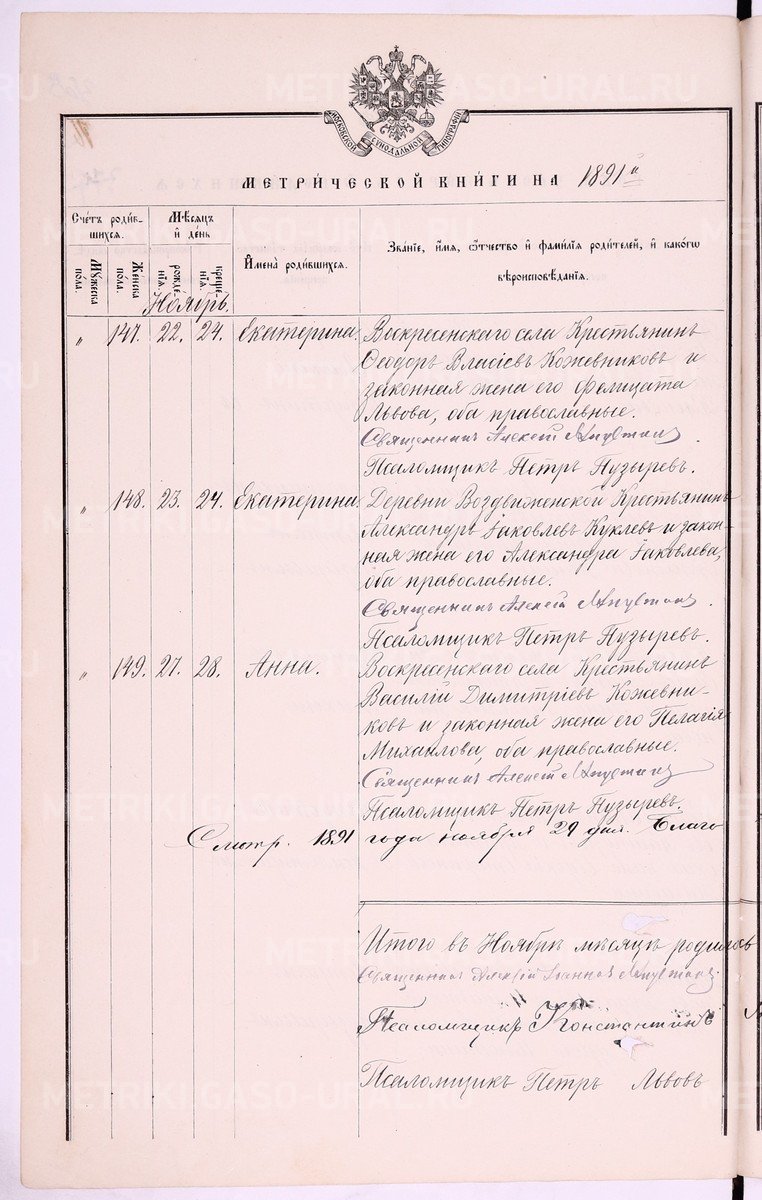 METRIKI-GASO-URAL.RU
МОСКОВСКОЙ СѴНОДАЛЬНОЙ ТИПОГРАФІИ
МЕТРИ́ЧЕСКОЙ КНИ́ГИ НА 1891й
Сче́тъ роди́вшихся.
Мѣсяцъ и҆ де́нь
Мꙋжеска по́ла.
Же́нска по́ла.
рожде́нїѧ.
креще́нїѧ.
И҆мена̀ роди́вшихся.
Зва́нїе, и҆́мѧ, ѻ҆́тчество и҆ фами́лїѧ роди́телей, и҆ како́гѡ вѣроисповѣ́данїѧ.
Ноябрь.
„ 147. 22. 24. Екатерина. Воскресенскаго села Крестьянинъ
Ѳеодоръ Власіевъ Кожевниковъ и
законная жена его Фелицата
Львова, оба православные.
Священникъ Алексѣй
Псаломщикъ Петръ Пузыревъ.
„ 148. 23. 24. Екатерина. Деревни Воздвиженской Крестьянинъ
Александръ Іаковлевъ Куклевъ и закон-
ная жена его Александра Іаковлева,
оба православные.
Священникъ Алексѣй
Псаломщикъ Петръ Пузыревъ.
„ 149. 27. 28. Анна. Воскресенскаго села Крестьянинъ
Василій Димитріевъ Кожевни-
ковъ и законная жена его Пелагія
Михаилова, оба православные.
Священникъ Алексѣй
Псаломщикъ Петръ Пузыревъ.
Смотр. 1891 года ноября 29 дня. Благо
Итого въ Ноябрѣ мѣсяцѣ родилось
Священникъ Алексѣй Іоанновъ
Псаломщикъ Константинъ
Псаломщикъ Петръ Львовъ